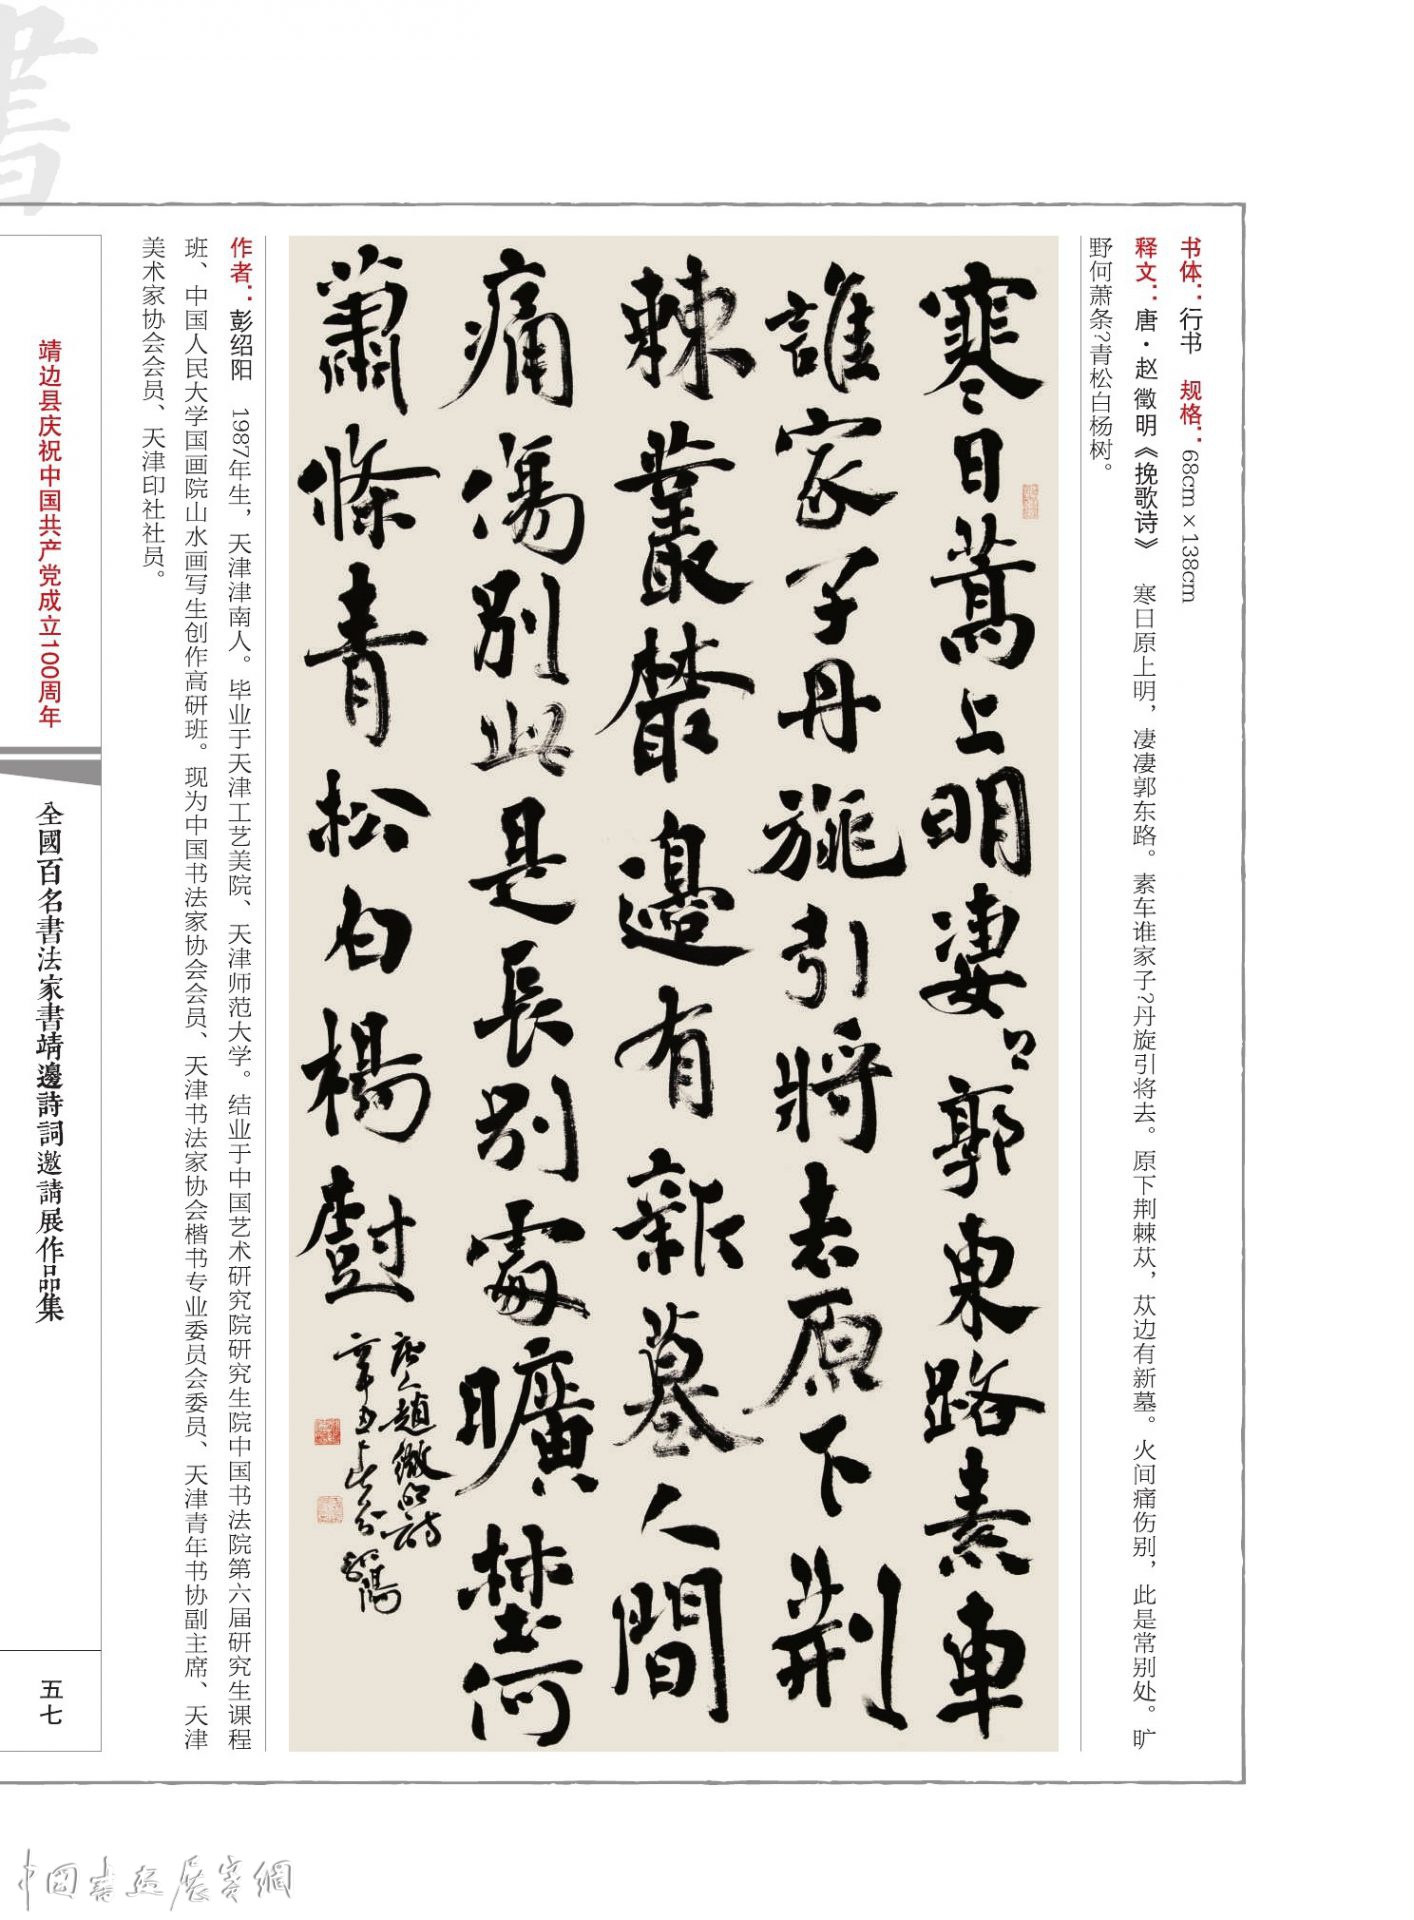 書
书体：行书　规格：68cm×138cm
释文：唐·赵徵明《挽歌诗》　寒日原上明，凄凄郭东路。素车谁家子?丹旋引将去。原下荆棘苁，苁边有新墓。火间痛伤别，此是常别处。旷
野何萧条?青松白杨树。
寒日蒿上明凄〻郭東路素車
誰家子丹旐引將去原下荆
棘叢叢邊有新墓人間
痛傷别此是長别處曠野何
蕭條青松白楊樹
唐人趙徵明詩
辛丑
作者：彭绍阳　1987年生，天津津南人。毕业于天津工艺美院、天津师范大学。结业于中国艺术研究院研究生院中国书法院第六届研究生课程
班、中国人民大学国画院山水画写生创作高研班。现为中国书法家协会会员、天津书法家协会楷书专业委员会委员、天津青年书协副主席、天津
美术家协会会员、天津印社社员。
靖边县庆祝中国共产党成立100周年
全國百名書法家書靖邊詩詞邀請展作品集
五七
中國書画展賽網